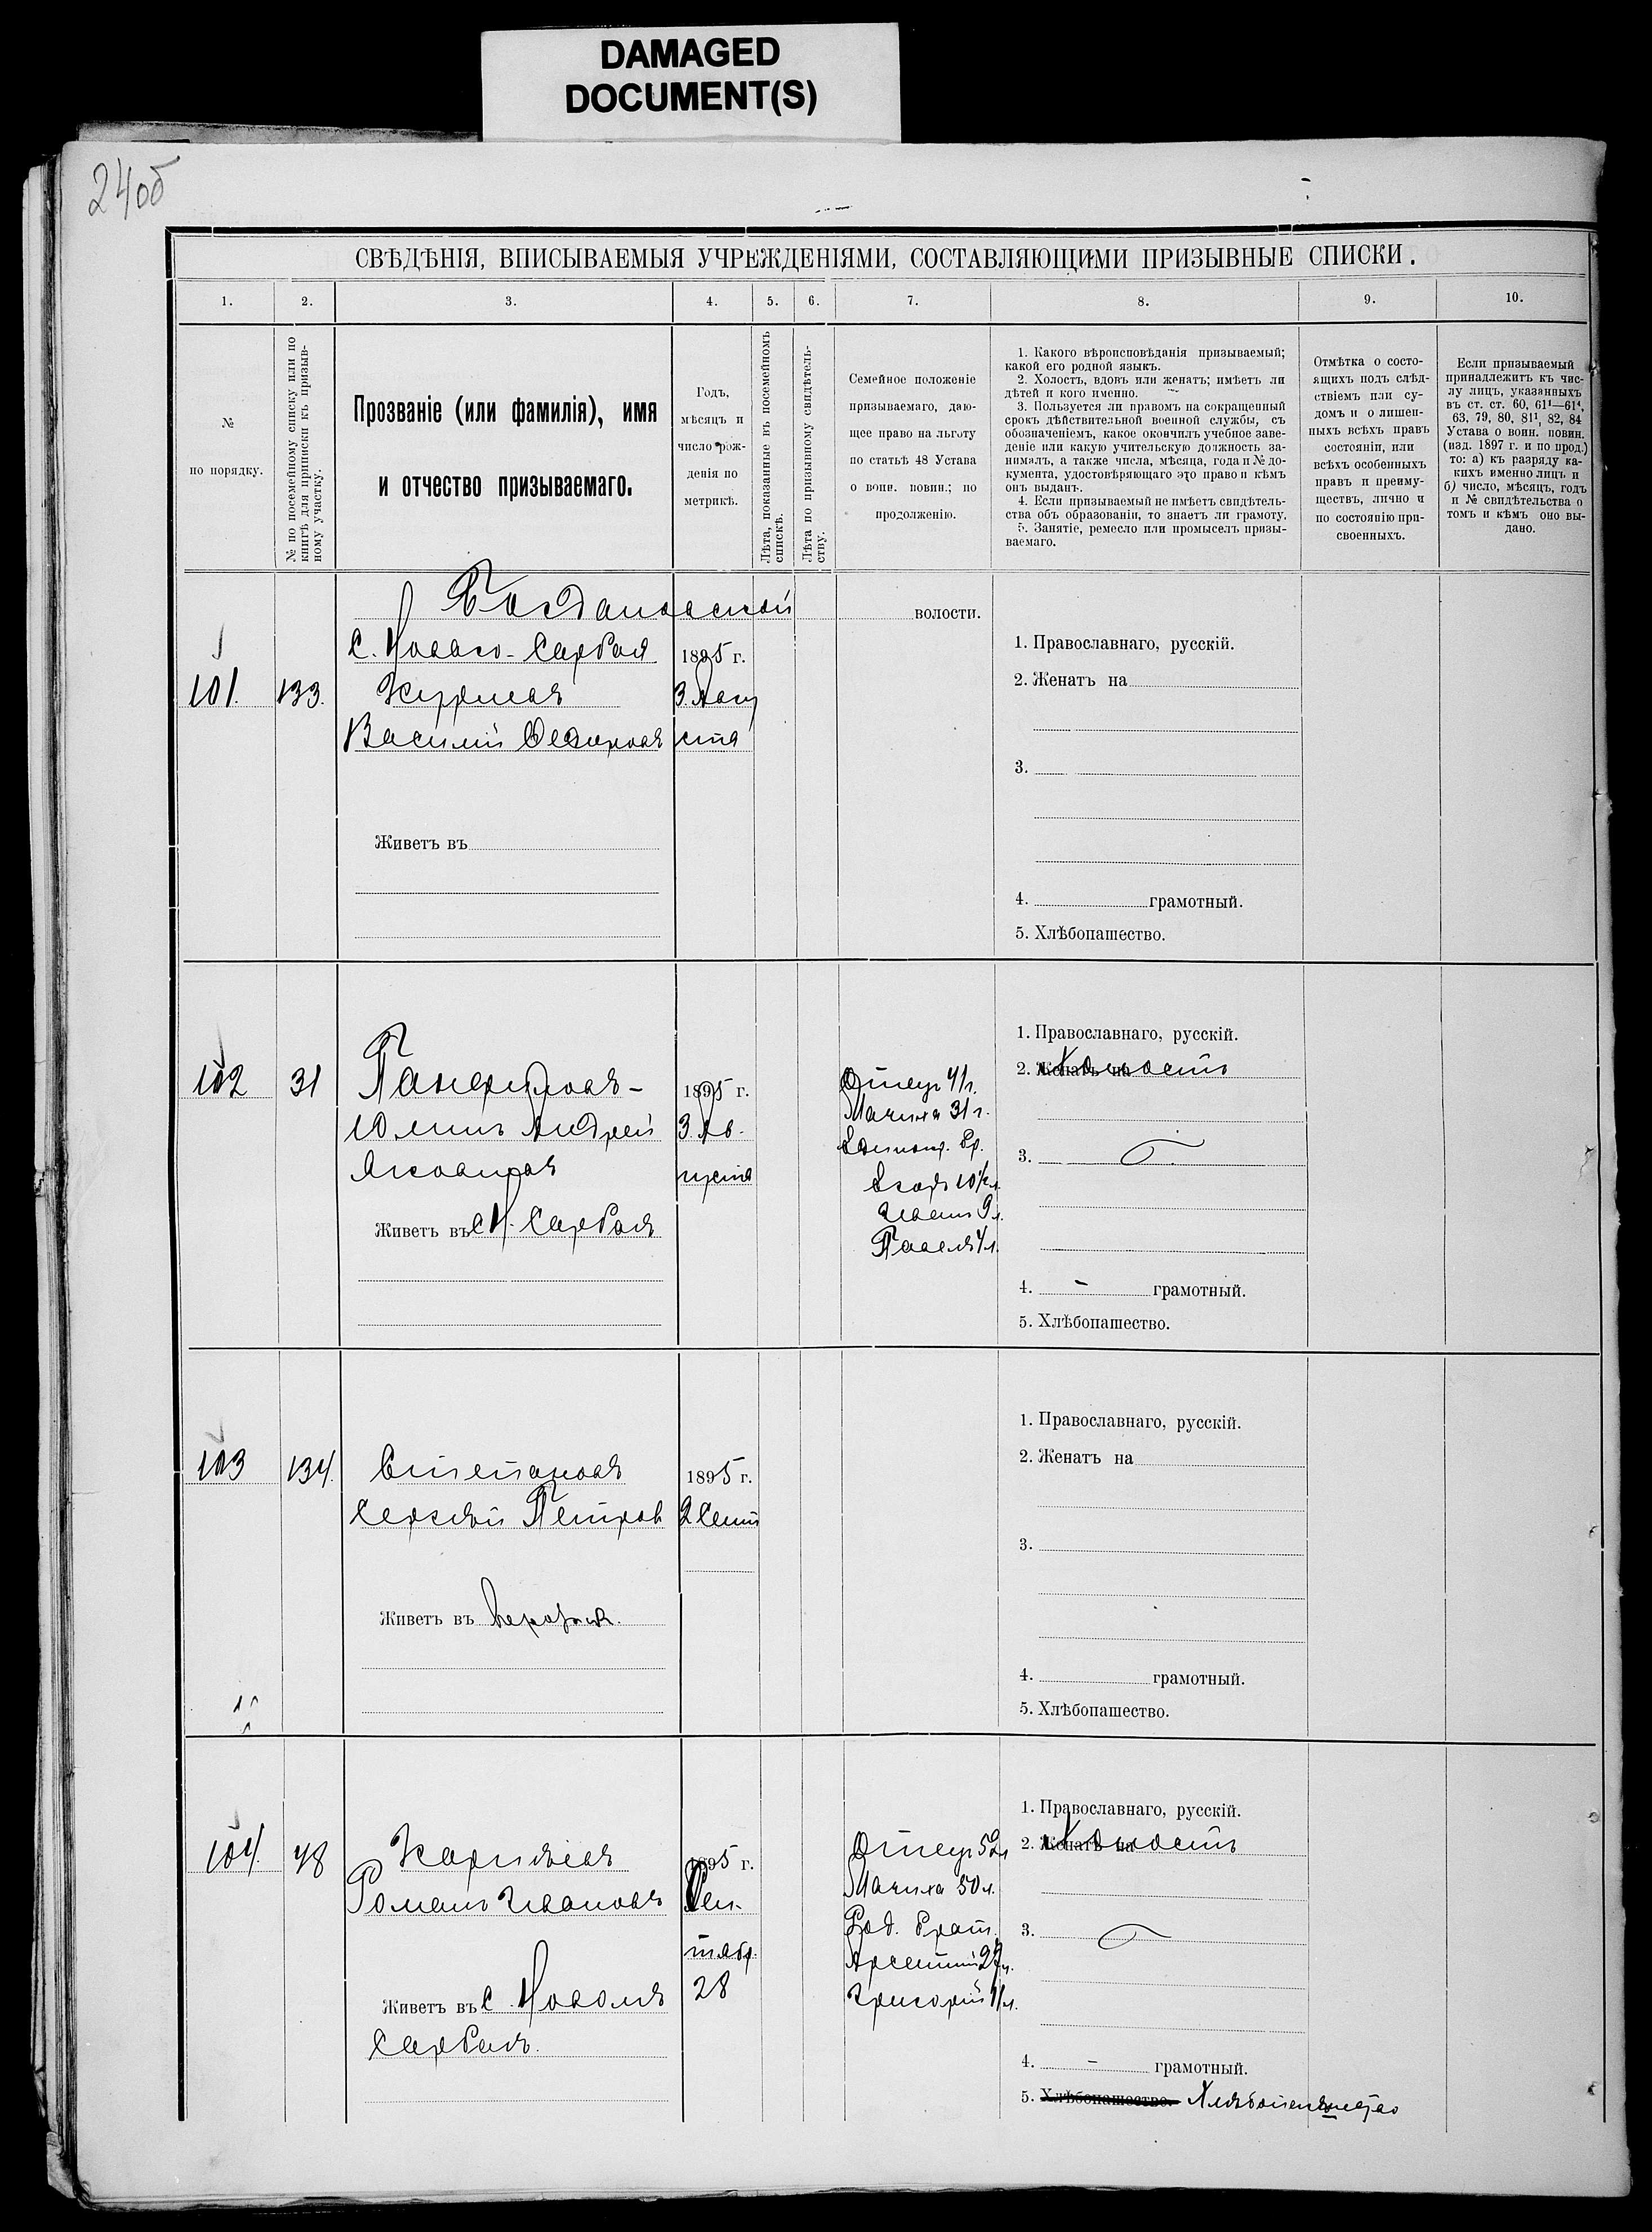 DAMAGED
DOCUMENT(S)
24об
СВѢДѢНІЯ, ВПИСЫВАЕМЫЯ УЧРЕЖДЕНІЯМИ, СОСТАВЛЯЮЩИМИ ПРИЗЫВНЫЕ СПИСКИ.
1. 2. 3. 4. 5. 6. 7. 8. 9. 10.
№
по порядку.
№ по посемейному списку или по
книгѣ для приписки къ призыв-
ному участку.
Прозваніе (или фамилія), имя
и отчество призываемаго.
Годъ,
мѣсяцъ и
число рож-
денія по
метрикѣ.
Лѣта, показанные въ посемейномъ
спискѣ.
Лѣта по призывному свидѣтель-
ству.
Семейное положеніе
призываемаго, даю-
щее право на льготу
по статьѣ 48 Устава
о воин. повин.; по
продолженію.
1. Какого вѣроисповѣданія призываемый;
какой его родной языкъ.
2. Холостъ, вдовъ или женатъ; имѣетъ ли
дѣтей и кого именно.
3. Пользуется ли правомъ на сокращенный
срокъ дѣйствительной военной службы, съ
обозначеніемъ, какое окончилъ учебное заве-
деніе или какую учительскую должность за-
нималъ, а также числа, мѣсяца, года и № до-
кумента, удостовѣряющаго это право и кѣмъ
онъ выданъ.
4. Если призываемый не имѣетъ свидѣтель-
ства объ образованіи, то знаетъ ли грамоту.
5. Занятіе, ремесло или промыселъ призы-
ваемаго.
Отмѣтка о состо-
ящихъ подъ слѣд-
ствіемъ или су-
домъ и о лишен-
ныхъ всѣхъ правъ
состоянія, или
всѣхъ особенныхъ
правъ и преиму-
ществъ, лично и
по состоянію при-
своенныхъ.
Если призываемый
принадлежитъ къ чис-
лу лицъ, указанныхъ
въ ст. ст. 60, 61¹—61⁴,
63, 79, 80, 81¹, 82, 84
Устава о воин. повин.
(изд. 1897 г. и по прод.)
то: а) къ разряду ка-
кихъ именно лицъ и
б) число, мѣсяцъ, годъ
и № свидѣтельства о
томъ и кѣмъ оно вы-
дано.
Богдановской волости.
с. Новаго-Сарбая 1895 г.
101. 133.
3. Авгу
Василій Федоровъ ста
Живетъ въ
1. Православнаго, русскій.
2. Женатъ на
3.
4. грамотный.
5. Хлѣбопашество.
102 31 Панфиловъ- 1895 г.
Юлинъ Андрей 3. Ав-
Яковлевъ густа
Живетъ въ с. Н. Сарбаѣ
Отецъ 41 г.
Мачиха 31 г.
Единокр. бр.
Иванъ 9 л.
Павелъ 4 л.
1. Православнаго, русскій.
2. Женатъ на Холостъ
3.
4. - грамотный.
5. Хлѣбопашество.
103 134. Степановъ 1895 г.
Сергѣй Петров 2 Сент
Живетъ въ
1. Православнаго, русскій.
2. Женатъ на
3.
4. грамотный.
5. Хлѣбопашество.
104. 48 1895 г.
Романъ Ивановъ Сен-
тябр.
28
Живетъ въ с. Новомъ
Сарбаѣ.
Отецъ 52 л
Мачиха 50 л.
Род. брат.
Арсентій 27 л.
Григорій 11 л.
1. Православнаго, русскій.
2. Женатъ на Холостъ
3.
4. - грамотный.
5. Хлѣбопашество. Хлѣбопашество